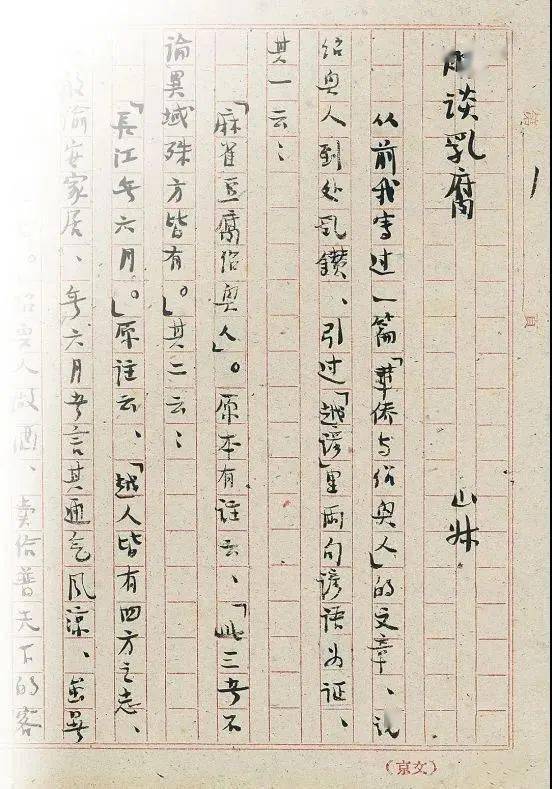 谈乳腐
1
从前我写过一篇「華侨与绍兴人」的文章、说
绍兴人到处乱鑽、引过「越谚」里两句谚语为证、
其一云：
「麻雀豆腐绍兴人」。原本有註云、「此三者不
論異域殊方皆有。」其二云：
「長江无六月。」原註云、「越人皆有四方之志、
安家居、无六月者言其通气风凉、虽暑
绍兴人做酒、卖给普天下的客
第 頁
（京文）